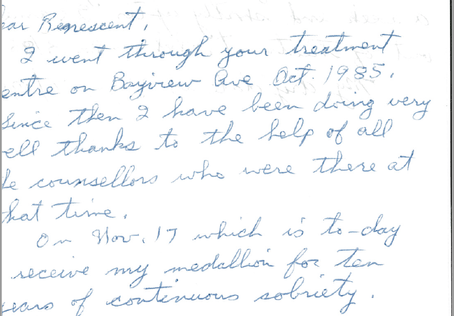 ear Renescent,
I went through your treatment
entre on Bayview Ave Oct. 1985.
Since then I have been doing very
ell thanks to the help of all
he counsellors who were there at
hat time.
On Nov. 17 which is to-day
receive my medallion for ten
years of continuous sobriety.